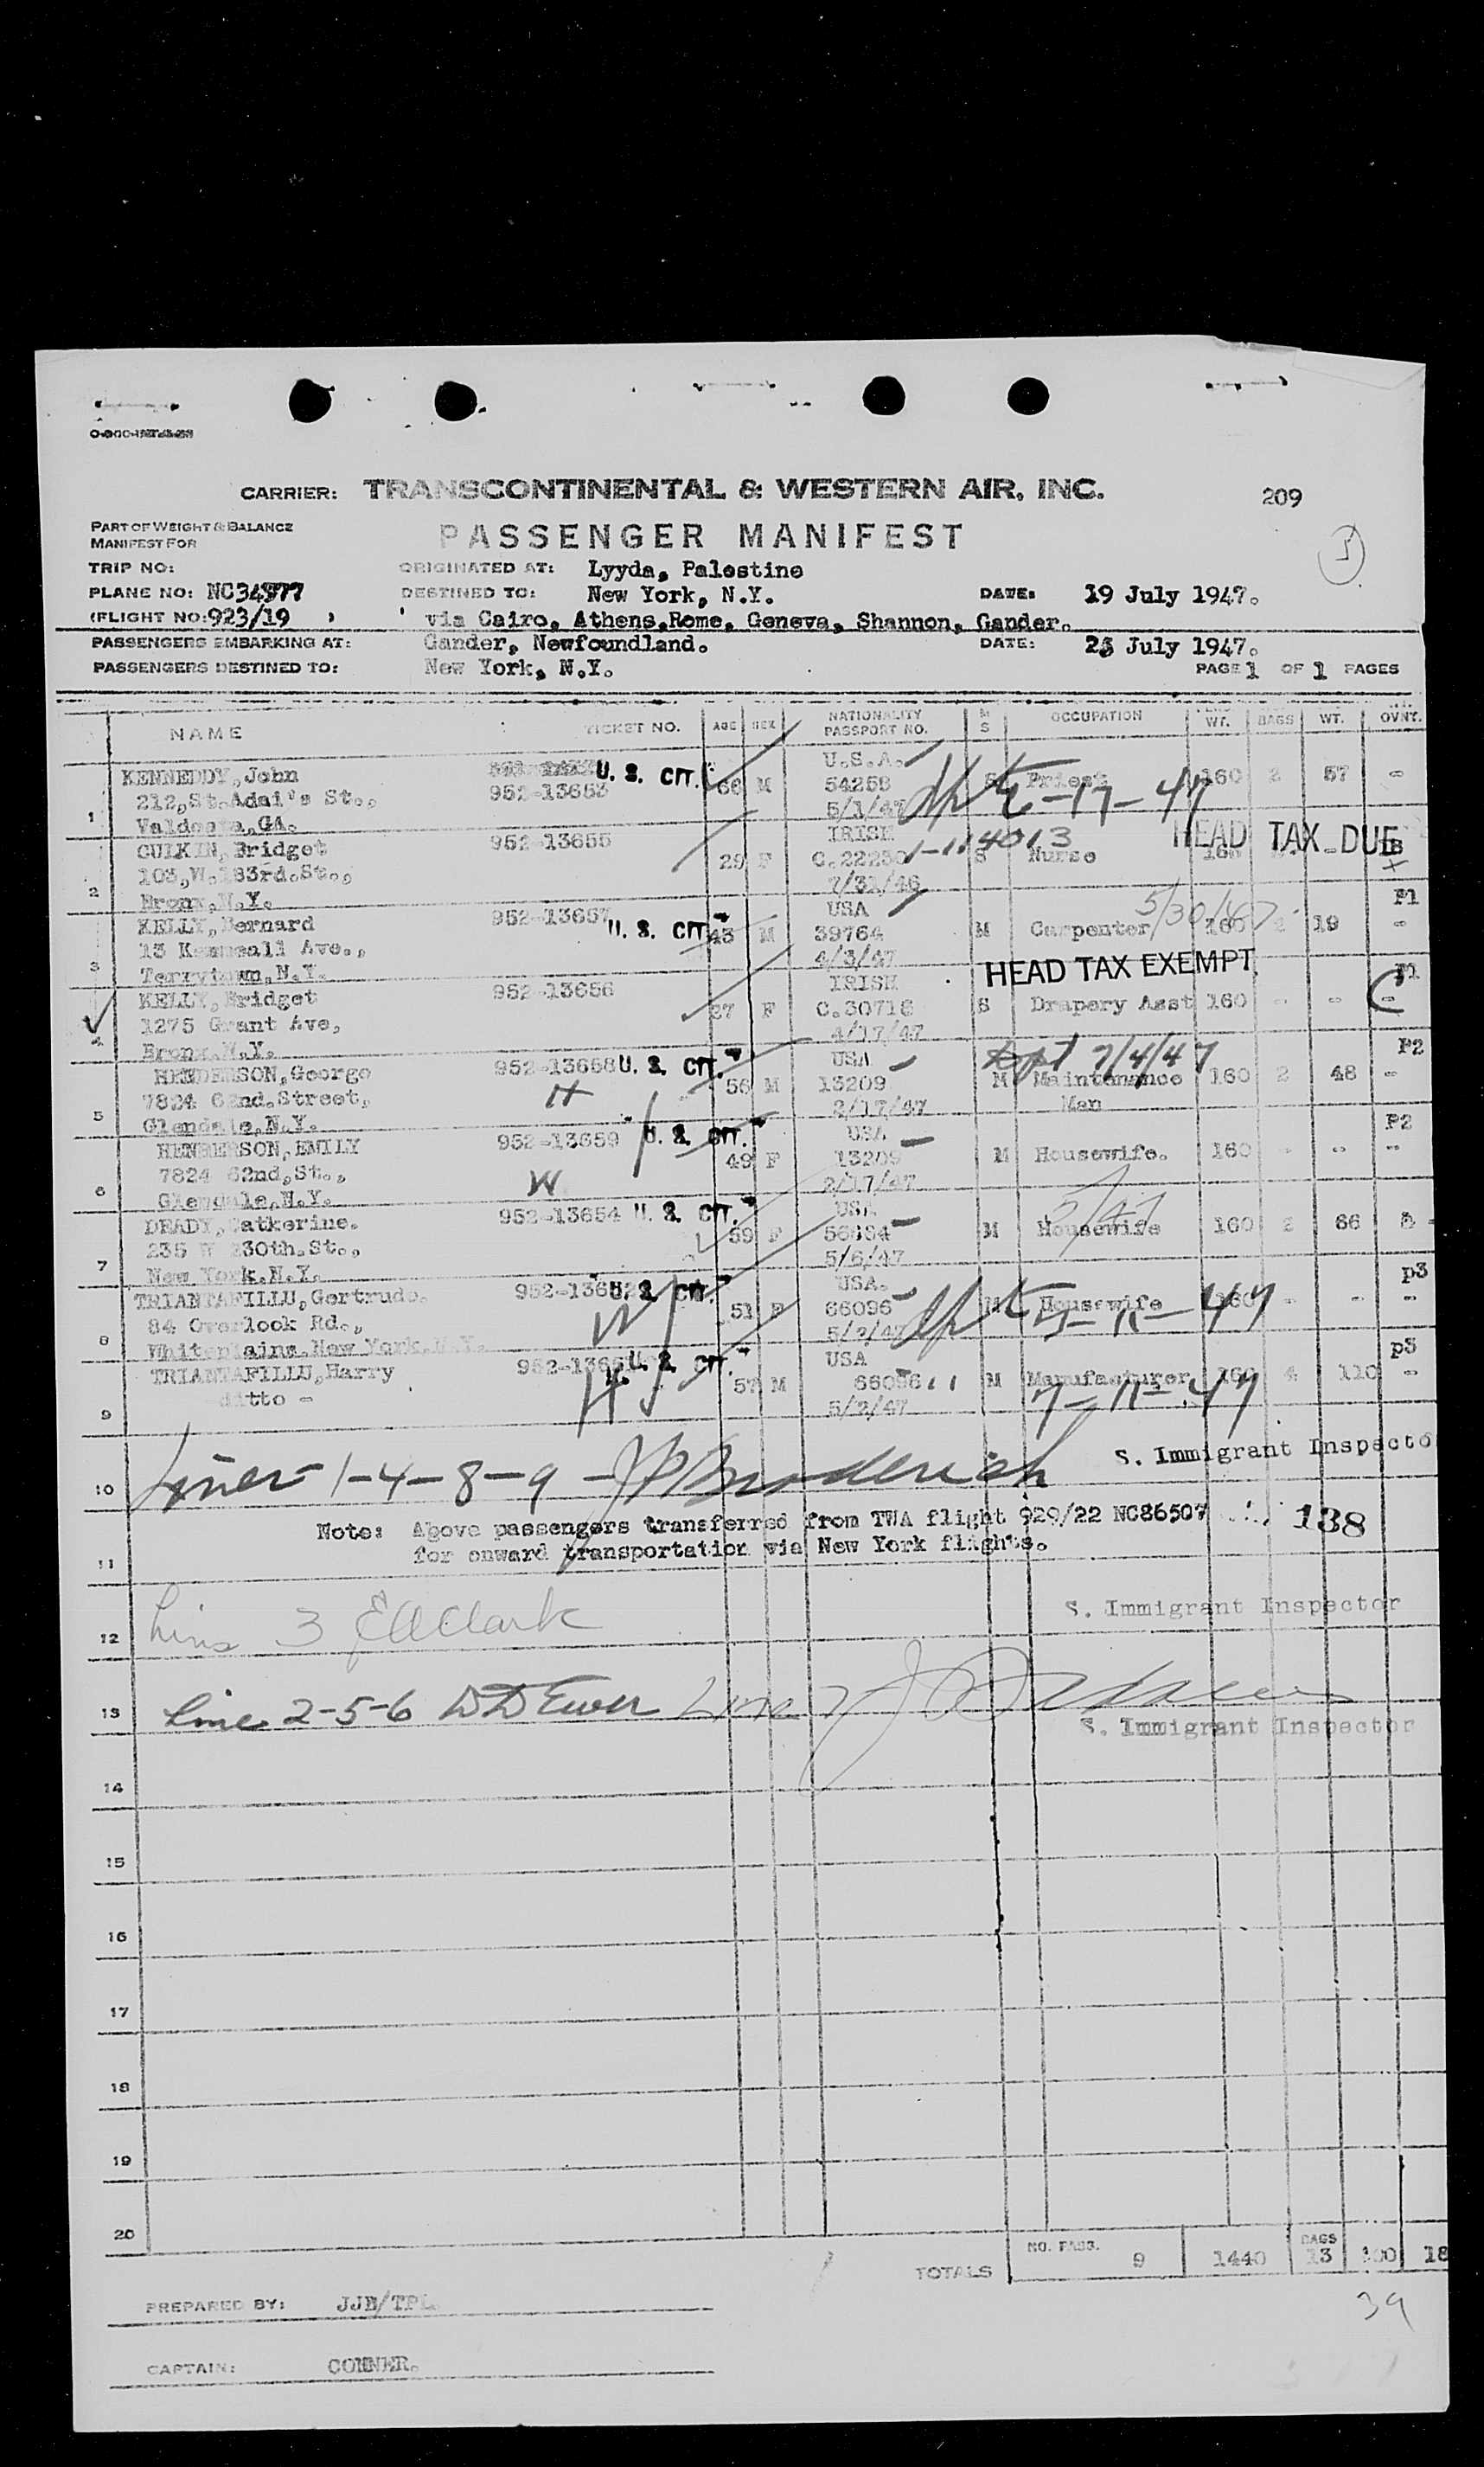 CARRIER: TRANSCONTINENTAL & WESTERN AIR, INC. 209
PART OF WEIGHT & BALANCE
MANIFEST FOR
PASSENGER MANIFEST
TRIP NO: ORIGINATED AT: Lyyda, Palestine
PLANE NO: DESTINED TO: New York, N.Y. DATE: 19 July 1947.
(FLIGHT NO: 923/19 ) via Cairo, Athens,Rome, Geneva, Shannon, Gander.
PASSENGERS EMBARKING AT: Gander, Newfoundland. DATE: July 1947.
PASSENGERS DESTINED TO: New York, N.Y. PAGE 1 OF 1 PAGES
NAME TICKET NO. AGE SEX NATIONALITY PASSPORT NO. M S OCCUPATION WT. BAGS WT. OVNT.
1 KENNEDDY,John U. S. CIT. 66 M U.S.A. S Priest 160 2 57 -
212,St.Adai's St., 952-13653 54258
Valdosta,GA. 5/1/47 6-17-47
2 GUIKIN,Bridget 952-13655 29 F IRISH 1-114013 S Nurse 160 HEAD TAX DUE
103,W.183rd.St., C.22230
Bronx,N.Y. 7/31/46
3 KELLY,Bernard 952-13657 U. S. CIT. 43 M USA M Carpenter 5/30/47 160 2 19 - P1
13 Ave., 39764
Terrytown,N.Y. 4/3/47
4 KELLY,Bridget 952-13656 27 F IRISH HEAD TAX EXEMPT S Drapery Asst 160 - - - P1
1275 Grant Ave, C.30718
Bronx,N.Y. 4/17/47
5 HENDERSON,George 952-13658 U. S. CIT. 56 M USA Dpt 7/4/47 M Maintenance 160 2 48 - P2
7824 62nd.Street, H 13209 Man
Glendale,N.Y. 2/17/47
6 HENDERSON,EMILY 952-13659 U. S. CIT. 49 F USA M Housewife. 160 - - - P2
7824 62nd,St., W 13209
Glendale,N.Y. 2/17/47
7 DEADY,Catherine. 952-13654 U. S. CIT. 59 F USA M Housewife 5/47 160 2 66
235 W 230th.St., 56884
New York.N.Y. 5/6/47
8 TRIANTAFILLU,Gertrude. U. S. CIT. 51 F USA. M Housewife 160 - - - p3
84 Overlook Rd., W 66096
Whiteplains.New York.N.Y. 5/2/47 5-11-47
9 TRIANTAFILLU,Harry U. S. CIT. 57 M USA M Manufacturer 160 4 110 - p3
ditto - H 66096 7-11-47
5/2/47
10 Lines 1-4-8-9 - JP Broderick S. Immigrant Inspecto
Note: Above passengers transferred from TWA flight 929/22 NC86507 138
11 for onward transportation via New York flights.
12 Line 3 EAClark S. Immigrant Inspector
13 Line 2-5-6 DD Ewer Line 7
S. Immigrant Inspector
14
15
16
17
18
19
20
TOTALS NO. PASS. 9 1440 BAGS 13 300 18
39
PREPARED BY: JJB/TPL
CAPTAIN: CONNER.